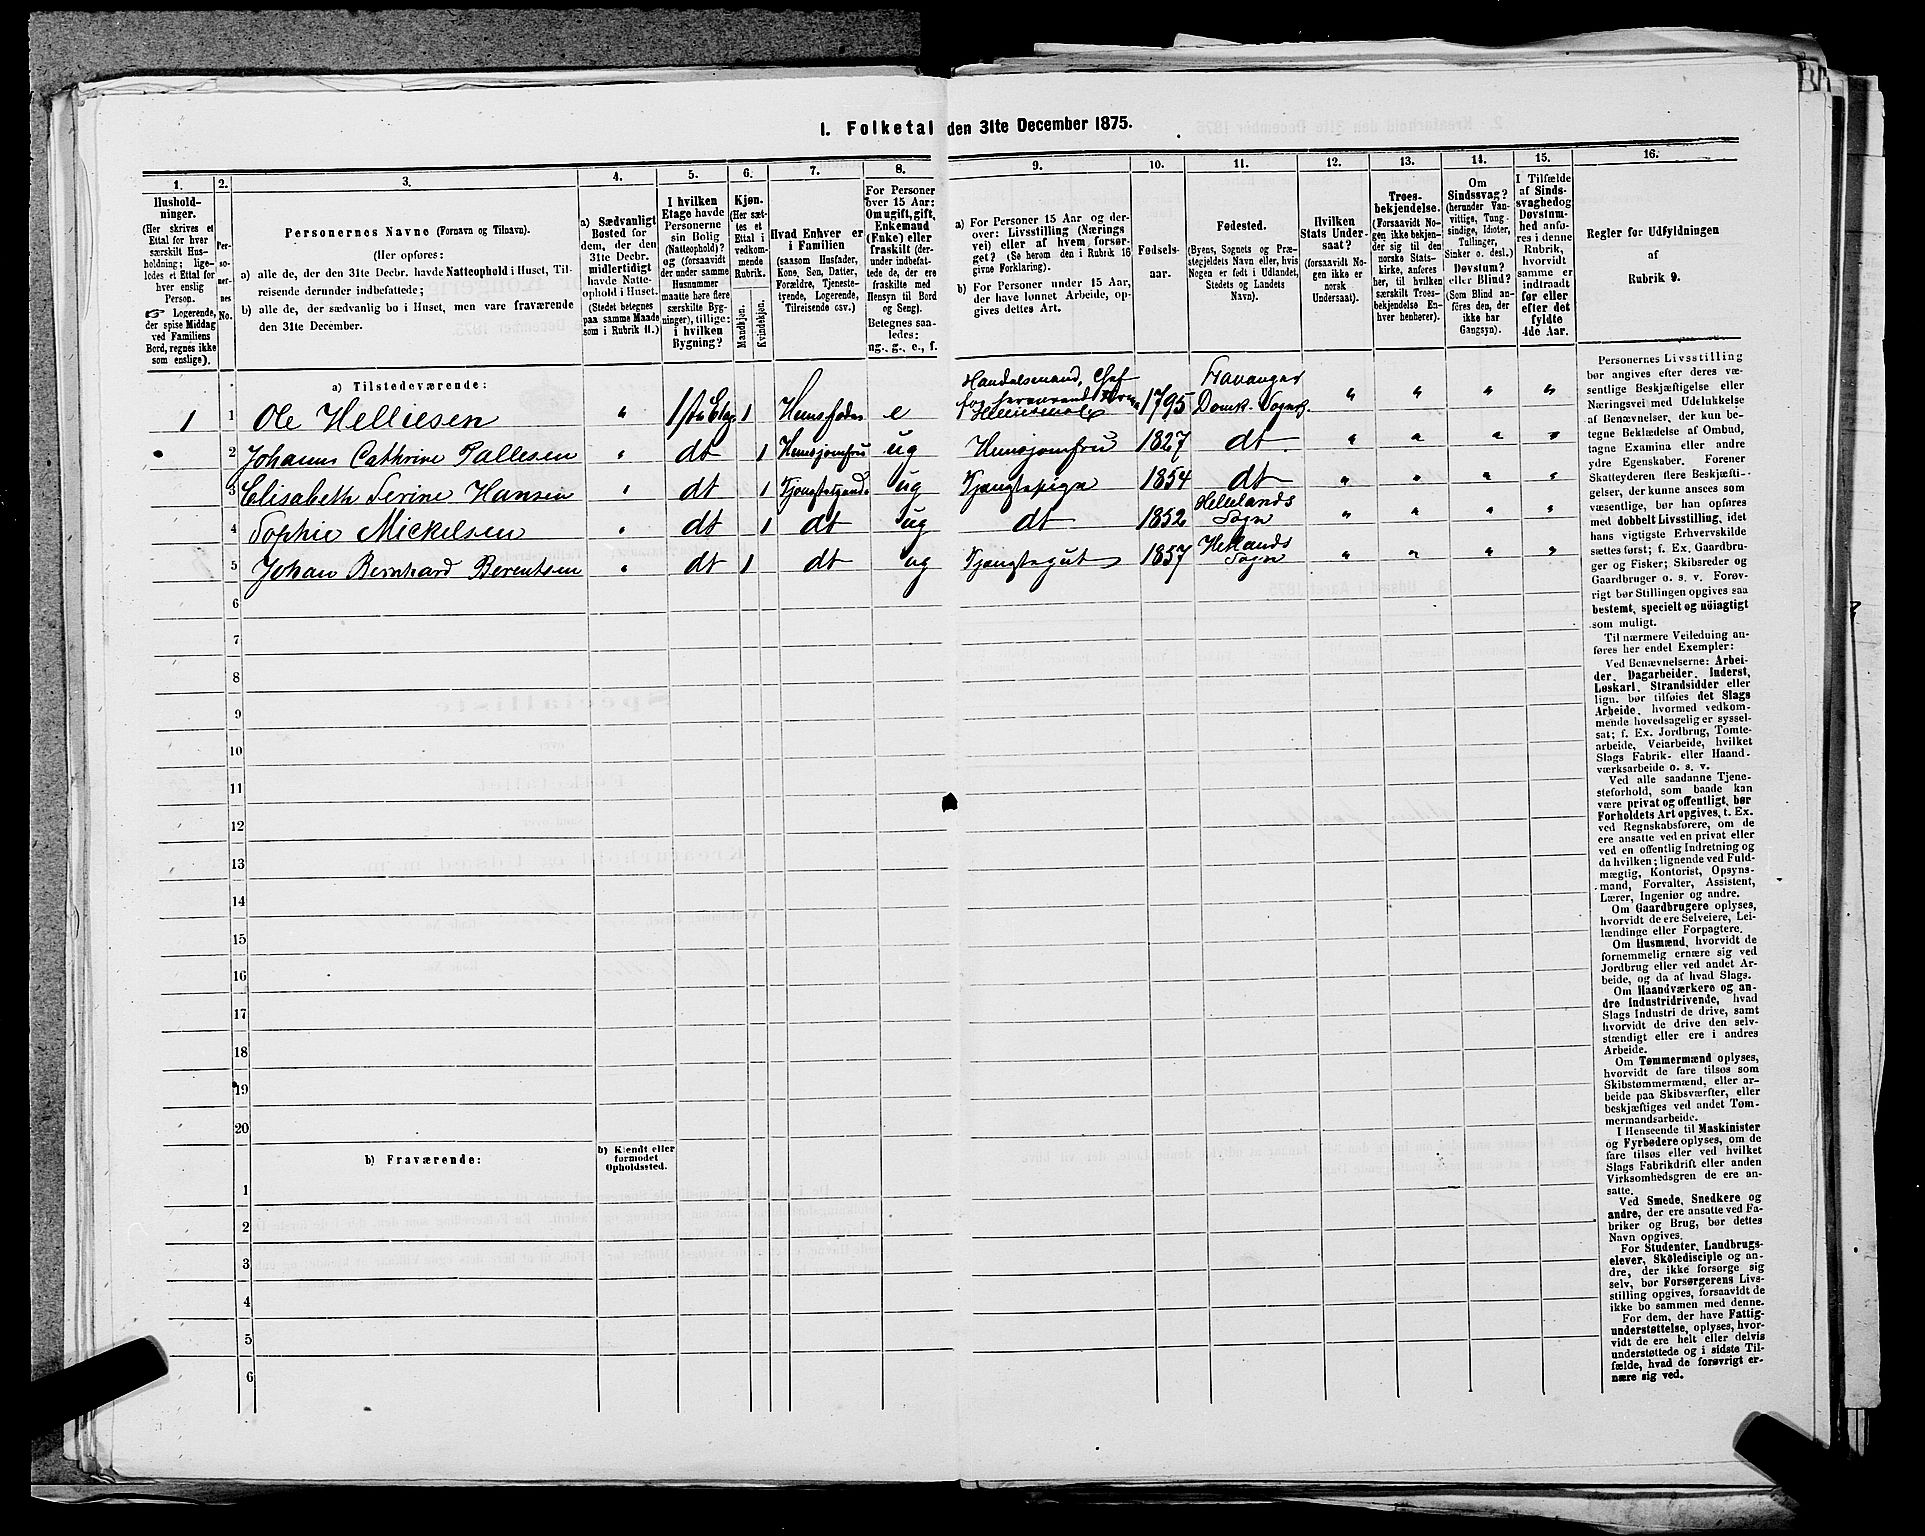 1. Folketal den 31te December 1875.
1. 2. 3. 4. 5. 6. 7. 8. 9. 10. 11. 12. 13. 14. 15. 16.
Hushold-
ninger.
(Her skrives et
Ettal for hver
særskilt Hus-
holdning; lige-
ledes et Ettal for
hver enslig
Person.
☞ Logerende,
der spise Middag
ved Familiens
Bord, regnes ikke
som enslige).
Per-
so-
ner-
nes
No.
Personernes Navne (Fornavn og Tilnavn).
(Her opføres:
a) alle de, der den 31te Decbr. havde Natteophold i Huset, Til-
reisende derunder indbefattede;
b) alle de, der sædvanlig bo i Huset, men vare fraværende
den 31te December.
a) Sædvanligt
Bosted for
dem, der den
31te Decbr.
midlertidigt
havde Natte-
ophold i Huset.
(Stedet betegnes
paa samme Maade
som i Rubrik 11.)
I hvilken
Etage havde
Personerne
sin Bolig
(Natteophold)?
og (forsaavidt
der under samme
Husnummer
maatte høre flere
særskilte Byg-
ninger), tillige:
i hvilken
Bygning?
Kjøn.
(Her sæt-
tes et
Ettal i
vedkom-
mende
Rubrik.
Mandkjøn.
Kvindekjøn.
Hvad Enhver er
i Familien
(saasom Husfader,
Kone, Søn, Datter,
Forældre, Tjeneste-
tyende, Logerende,
Tilreisende osv.)
For Personer
over 15 Aar:
Om ugift, gift,
Enkemand
(Enke) eller
fraskilt (der-
under indbefat-
tede de, der ere
fraskilte med
Hensyn til Bord
og Seng).
Betegnes saa-
ledes:
ug., g., e., f.
a) For Personer 15 Aar og der-
over: Livsstilling (Nærings
vei) eller af hvem forsør-
get? (Se herom den i Rubrik 16
givne Forklaring).
b) For Personer under 15 Aar,
der have lønnet Arbeide, op-
gives dettes Art.
Fødsels-
aar.
Fødested.
(Byens, Sognets og Præ-
stegjeldets Navn eller, hvis
Nogen er født i Udlandet,
Stedets og Landets
Navn).
Hvilken
Stats Under-
saat?
(forsaavidt No-
gen ikke er
norsk
Undersaat).
Troes-
bekjendelse.
(Forsaavidt No-
gen ikke bekjen-
der sig til den
norske Stats-
kirke, anføres
her, til hvilken
særskilt Troes-
bekjendelse En-
hver henhører).
Om
Sindssvag?
(herunder Van-
vittige, Tung-
sindige, Idioter,
Tullinger,
Sinker o. desl.)
Døvstum?
eller Blind?
(Som Blind an-
føres den, der
ikke har
Gangsyn).
I Tilfælde
af Sinds-
svaghed og
Døvstum-
hed anfø-
res i denne
Rubrik,
hvorvidt
samme er
indtraadt
før eller
efter det
fyldte
4de Aar.
Regler for Udfyldningen
af
Rubrik 9.
a) Tilstedeværende:
1 1 Ole Helliesen „ 1ste Etag 1 Huusfader e Handelsmand, Chef 1795 Stavanger Domk. Sogn „ „ „ „
2 Johanne Cathrine Pallesen „ dt 1 Huusjomfru ug Huusjomfru 1827 dt „ „ „ „
3 Elisabeth Serine Hansen „ dt 1 ug 1854 dt „ „ „ „
4 Sophie Mickelsen „ dt 1 dt ug dt 1852 Sogn „ „ „ „
5 Johan Bernhard Berentsen „ dt 1 dt ug 1857 Hetlands Sogn „ „ „ „
6
7
8
9
10
11
12
13
14
15
16
17
18
19
20
b) Fraværende:
b) Kjendt eller
formodet
Opholdssted.
1
2
3
4
5
6
Personernes Livsstilling
bør angives efter deres væ-
sentlige Beskjæftigelse eller
Næringsvei med Udelukkelse
af Benævnelser, der kun be-
tegne Beklædelse af Ombud,
tagne Examina eller andre
ydre Egenskaber. Forener
Skatteyderen flere Beskjæfti-
gelser, der kunne ansees som
væsentlige, bør han opføres
med dobbelt Livsstilling, idet
hans vigtigste Erhvervskilde
sættes først; f. Ex. Gaardbru-
ger og Fisker; Skibsreder og
Gaardbruger o. s. v. Forøv-
rigt bør Stillingen opgives saa
bestemt, specielt og nöiagtigt
som muligt.
Til nærmere Veiledning an-
føres her endel Exempler:
Ved Benævnelserne: Arbei-
der, Dagarbeider, Inderst,
Løskarl, Strandsidder eller
lign. bør tilføies det Slags
Arbeide, hvormed vedkom-
mende hovedsagelig er syssel-
sat; f. Ex. Jordbrug, Tomte-
arbeide, Veiarbeide, hvilket
Slags Fabrik- eller Haand-
værksarbeide o. s. v.
Ved alle saadanne Tjene-
steforhold, som baade kan
være privat og offentligt, bør
Forholdets Art opgives, t. Ex.
ved Regnskabsførere, om de
ere ansatte ved en privat eller
ved en offentlig Indretning og
da hvilken; lignende ved Fuld-
mægtig, Kontorist, Opsyns-
mand, Forvalter, Assistent,
Lærer, Ingeniør og andre.
Om Gaardbrugere oplyses,
hvorvidt de ere Selveiere, Lei-
lændinge eller Forpagtere.
Om Husmænd, hvorvidt de
fornemmelig ernære sig ved
Jordbrug eller ved andet Ar-
beide, og da af hvad Slags.
Om Haandværkere og an-
dre Industridrivende, hvad
Slags Industri de drive, samt
hvorvidt de drive den selv-
stændigt eller ere i andres
Arbeide.
Om Tømmermænd oplyses,
hvorvidt de fare tilsøs som
Skibstømmermænd, eller ar-
beide paa Skibsværfter, eller
beskjæftiges ved andet Tøm-
mermandsarbeide.
I Henseende til Maskinister
og Fyrbødere oplyses, om de
fare tilsøs eller ved hvilket
Slags Fabrikdrift eller anden
Virksomhedsgren de ere an-
satte.
Ved Smede, Snedkere og
andre, der ere ansatte ved Fa-
briker og Brug, bør dettes
Navn opgives.
For Studenter, Landbrugs-
elever, Skoledisciple og an-
dre, der ikke forsørge sig
selv, bør Forsørgerens Livs-
stilling opgives, forsaavidt de
ikke bo sammen med denne.
For dem, der have Fattig-
understøttelse, oplyses, hvor-
vidt de ere helt eller delvis
understøttede og i sidste Til-
fælde, hvad de forøvrigt er-
nære sig ved.